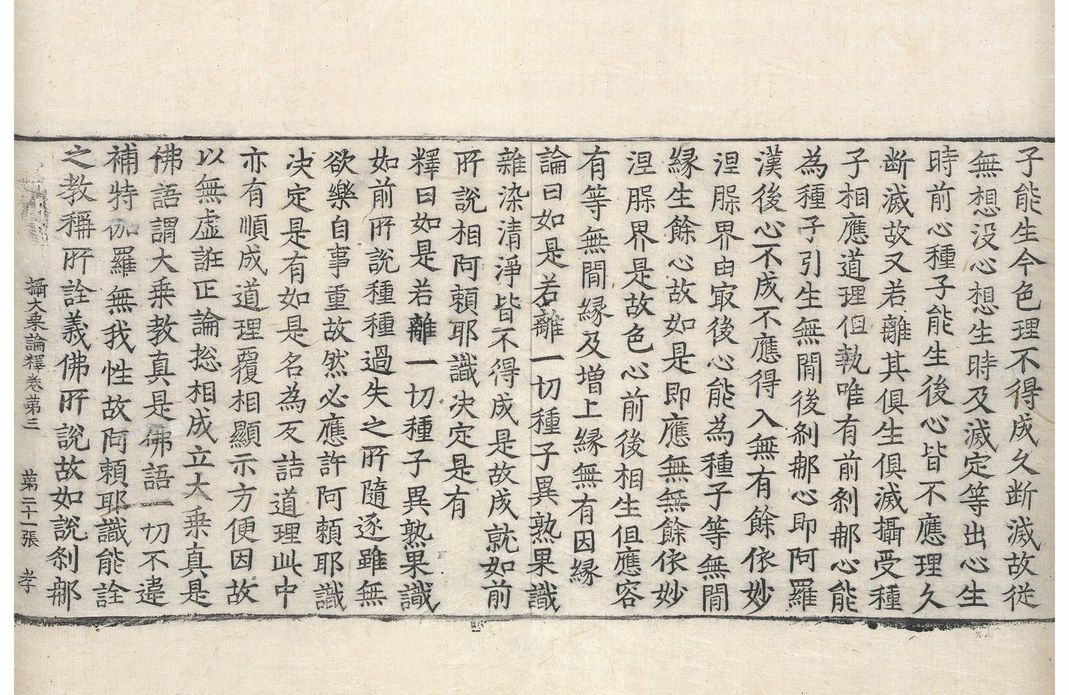 子能生今色理不得成久斷滅故從
無想没心想生時及滅定等出心生
時前心種子能生後心皆不應理久
斷滅故又若離其俱生俱滅攝受種
子相應道理但執唯有前刹郍心能
為種子引生無閒後刹郍心即阿羅
漢後心不成不應得入無有餘依妙
涅槃界由冣後心能為種子等無閒
緣生餘心故如是即應無無餘依妙
涅槃界是故色心前後相生但應容
有等無閒緣及增上緣無有因緣
論曰如是若離一切種子異熟果識
雜染清淨皆不得成是故成就如前
所說相阿賴耶識决定是有
釋曰如是若離一切種子異熟果識
如前所說種種過失之所隨逐雖無
欲樂自事重故然必應許阿賴耶識
决定是有如是名為反詰道理此中
亦有順成道理覆相顯示方便因故
以無虛誑正論捴相成立大乘真是
佛語謂大乘教真是佛語一切不違
補特伽羅無我性故阿賴耶識能詮
之教稱所詮義佛所說故如說刹郍
攝大乘論釋卷苐三 苐二十一張 孝